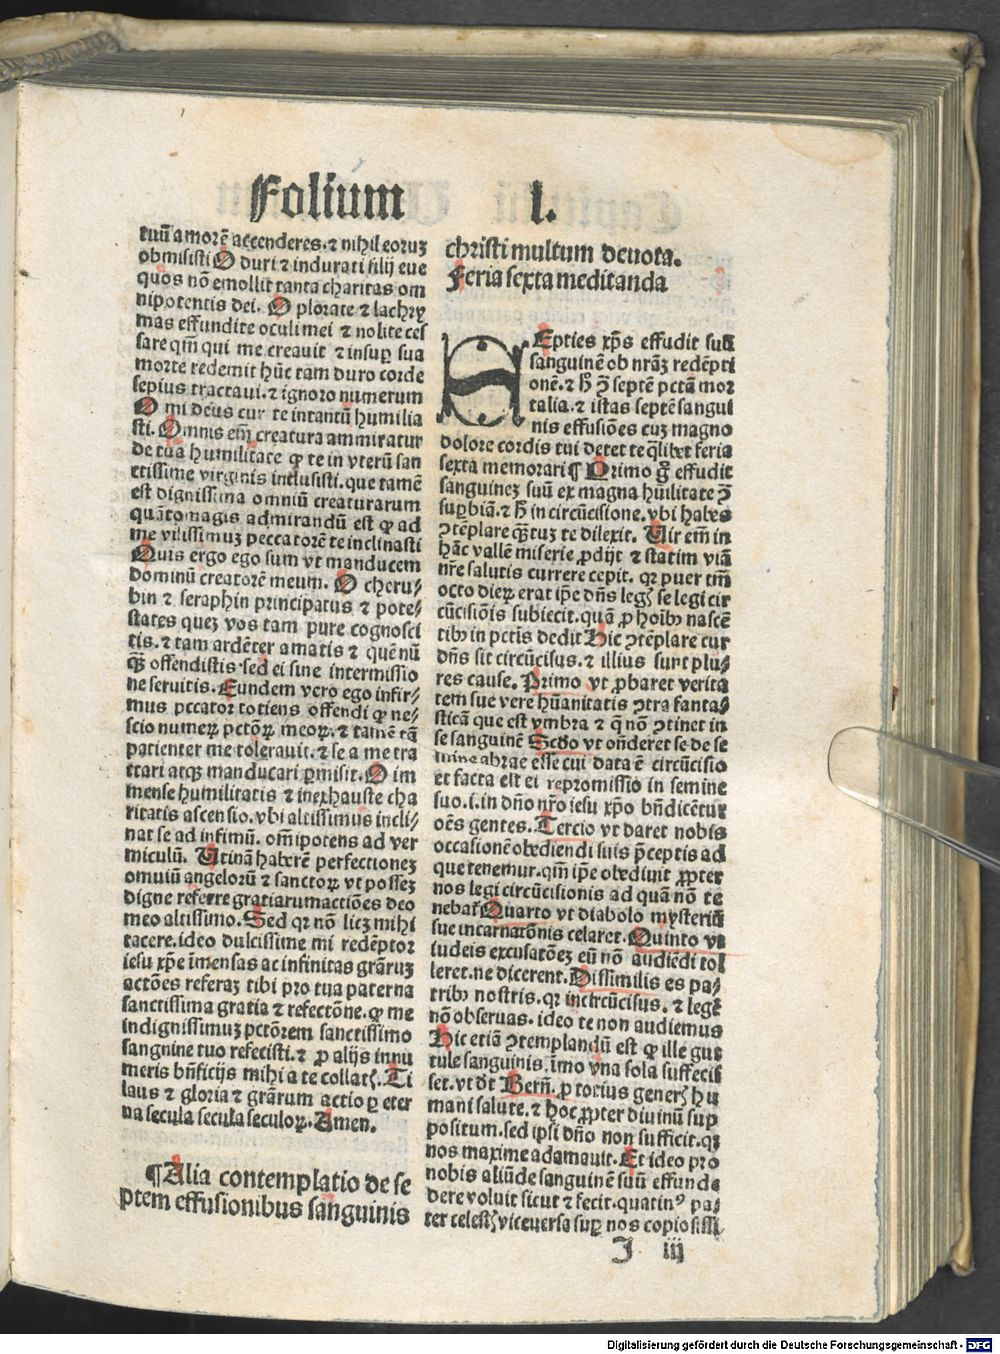 Folium l.
tuū amorē accenderes. ⁊ nihil eoruꝫ
obmisisti O duri ⁊ indurati filij eue
quos nō emollit tanta charitas om
nipotentis dei. O plorate ⁊ lachry
mas effundite oculi mei ⁊ nolite ces
sare qm̄ qui me creauit ⁊ insuꝑ sua
morte redemit hūc tam duro corde
sepius tractaui. ⁊ ignoro numerum
O mi deus cur te intantū humilia
sti. Omnis em̄ creatura ammiratur
de tua humilitate qꝫ te in vterū san
ctissime virginis inclusisti. que tamē
est dignissima omniū creaturarum
quāto magis admirandū est qꝫ ad
me vilissimuꝫ peccatorē te inclinasti
Quis ergo ego sum vt manducem
dominū creatorē meum. O cheru⸗
bin ⁊ seraphin principatus ⁊ pote⸗
states queꝫ vos tam pure cognosci
tis. ⁊ tam ardēter amatis ⁊ quē nū
qꝫ̄ offendistis. sed ei sine intermissio
ne seruitis. Eundem vero ego infir⸗
mus pccator totiens offendi qꝫ ne⸗
scio numeꝝ pctōꝝ meoꝝ. ⁊ tamē tā
patienter me tolerauit. ⁊ se a me tra
ctari atqꝫ manducari ꝑmisit. O im
mense humilitatis ⁊ inexhauste cha
ritatis ascensio. vbi altissimus incli⸗
nat se ad infimū. om̄ipotens ad ver
miculū. Utinā haberē perfectioneꝫ
omniū angelorū ⁊ sanctoꝝ vt posseꝫ
digne referre gratiarumactiōes deo
meo altissimo. Sed qꝛ nō licꝫ mihi
tacere. ideo dulcissime mi redēptor
iesu xp̄e īmensas ac infinitas grāruꝫ
actōes referaꝫ tibi pro tua paterna
sanctissima gratia ⁊ refectōne. qꝫ me
indignissimuꝫ pctōrem sanctissimo
sanguine tuo refecisti. ⁊ ꝓ alijs innu
meris bn̄ficijs mihi a te collatꝭ. Ti
laus ⁊ gloria ⁊ grārum actio ꝑ eter
na secula secula seculoꝝ. Amen.
¶Alia contemplatio de se
ptem effusionibus sanguinis
christi multum deuota.
Feria sexta meditanda
SEpties xp̄s effudit suū
sanguinē ob nr̄aꝫ redēpti
onē. ⁊ h̄ ꝯ̄ septē pctā mor
talia. ⁊ istas septē sangui
nis effusiōes cuꝫ magno
dolore cordis tui debet te qͥlibet feria
sexta memorari ¶ Primo gͦ effudit
sanguineꝫ suū ex magna hūilitate ꝯ̄
suꝑbiā. ⁊ h̄ in circūcisione. vbi habes
ꝯtēplare qꝫ̄tuꝫ te dilexit. Uir em̄ in
hāc vallē miserie ꝓdijt ⁊ statim viā
nr̄e salutis currere cepit. qꝛ puer tm̄
octo dieꝝ erat ip̄e dn̄s legꝭ se legi cir
cūcisiōis subiecit. quā ꝓ hoībꝰ nascē
tibꝰ in pctīs dedit Hic ꝯtēplare cur
dn̄s sit circūcisus. ⁊ illius sunt plu⸗
res cause. Primo vt ꝓbaret verita
tem sue vere hūanitatis ꝯtra fanta⸗
sticā que est vmbra ⁊ q̄ nō ꝯtinet in
se sanguinē Scd̄o vt on̄deret se de se
mine abrae esse cui data ē circūcisio
et facta est ei repromissio in semine
suo. i. in dn̄o nr̄o iesu xp̄o bn̄dicētur
oēs gentes. Tercio vt daret nobis
occasionē obediendi suis p̄ceptis ad
que tenemur. qm̄ ip̄e obediuit ꝓpter
nos legi circūcisionis ad quā nō te
nebat̃ Quarto vt diabolo mysteriū
sue incarnatōnis celaret. Quinto vt
iudeis excusatōeꝫ eū nō audiēdi tol
leret. ne dicerent. Dissimilis es pa⸗
tribꝰ nostris. qꝛ incircūcisus. ⁊ legē
nō obseruas. ideo te non audiemus
Hic etiā ꝯtemplandū est qꝫ ille gut
tule sanguinis, īmo vna sola suffecis
set. vt dt̄ Bern̄. ꝑ totius generꝭ hu
mani salute. ⁊ hoc ꝓpter diuinū sup
positum. sed ipsi dn̄o non sufficit. qꝛ
nos maxime adamauit. Et ideo pro
nobis aliūde sanguinē suū effunde
dere voluit sicut ⁊ fecit. quatinꝰ pa⸗
ter celestꝭ viceuersa suꝑ nos copiosissi
J iij
Digitalisierung gefördert durch die Deutsche Forschungsgemeinschaft - DFG